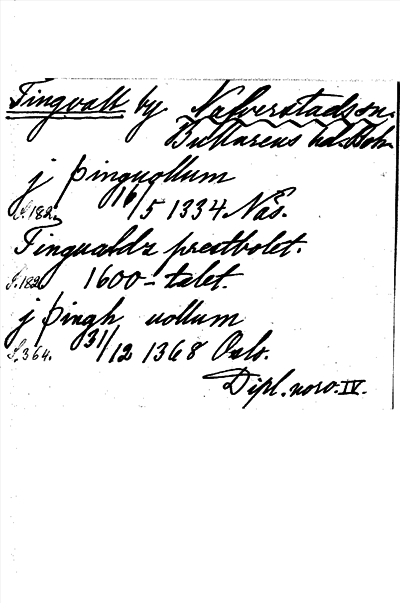 Tingvall by Nafverstadssn.
Bullarens hd. Boh.
j þinguollum
S.182. 16/5 1334 Nás.
Tingualdz prestbolet.
S.182. 1600-talet.
j þingh uollum
S.364. 31/12 1368 Oslo.
Dipl. norv. IV.